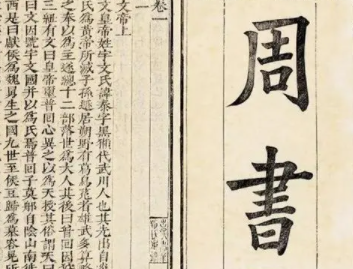 周書
卷一
文帝上
文皇帝姓宇文氏諱泰字黑獺代武川人也其先出自
氏爲黃帝所滅子孫遯居朔野有葛烏菟者雄武多算略
之奉以爲主遂總十二部落世爲大人其後曰普回因狩
三紐有文曰皇帝璽普回心異之以爲天授其俗謂天曰
曰文因號宇文國并以爲氏焉普回子莫那自陰山南徙
西是曰獻侯爲魏舅生之國九世至侯豆歸爲慕容晃所